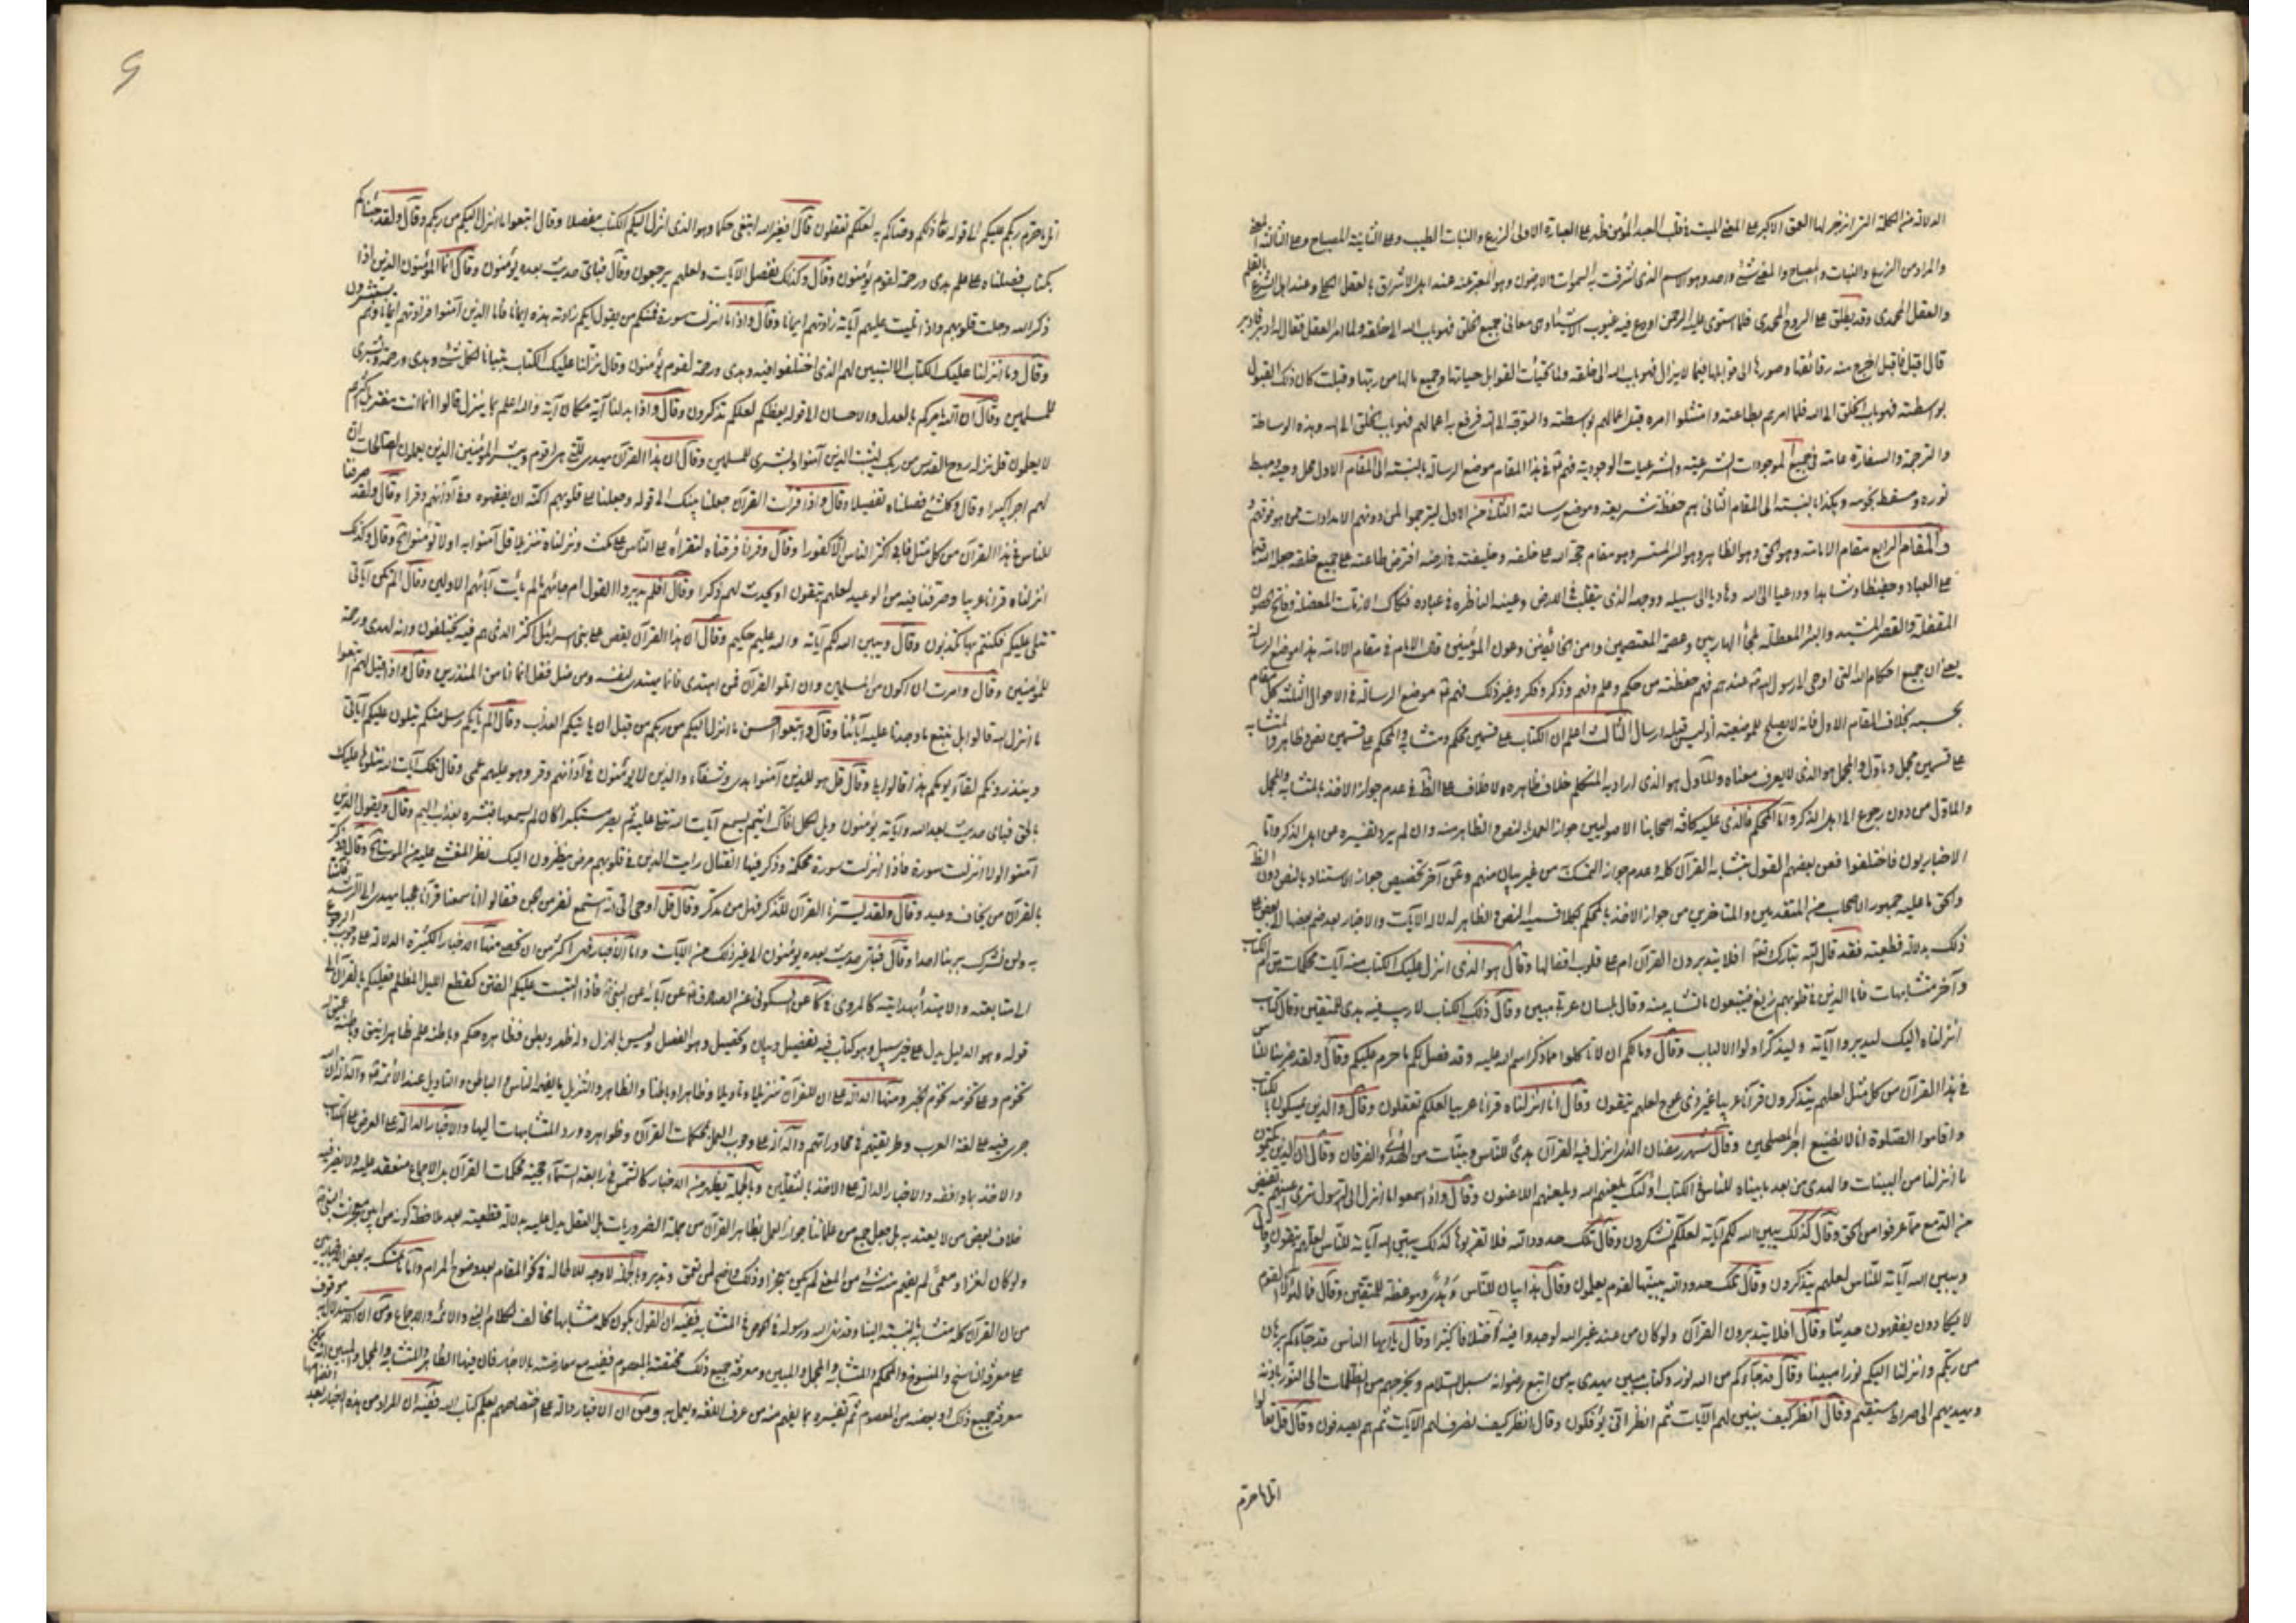 الدلالة من الكلمة التي انزجر لها العمق الاكبر على المعنى الميت في قلب العبد المؤمن فظهر على العبارة الاولى الزرع والنبات الطيب وعلى الثانية المصباح وعلى الثالثة المعنى
والمراد من الزرع والنبات والمصباح والمعنى شيء واحد وهو الاسم الذي اشرقت به السموات والارضون وهو المعبر عنه عند اهل الاشراق بالعقل الكلي وعند اهل الشرع بالقلم
والعقل المحمدي وقد يطلق على الروح المحمدي فلما استوى عليه الرحمن اودع فيه غيوب الاشياء وهي معاني جميع الخلق فهو باب الله الى خلقه ولما امر العقل فقال له ادبر فادبر
قال اقبل فاقبل اخرج منه رقائقها وصورها الى قوابلها فيما لا يزال فهو باب الله الى خلقه ولما تهيأت القوابل حياتها وجميع ما لها من ربها وقبلت كان ذلك القبول
بواسطته فهو باب الخلق الى الله فلما امرهم بطاعته وامتثلوا امره قبل اعمالهم بواسطته والتوجه الى الله فرفع به اعمالهم فهو باب الخلق الى الله وبهذه الوساطة
والترجمة والسفارة عامة في جميع الموجودات الشرعية والشرعيات الوجودية فهم في هذا المقام موضع الرسالة بالنسبة الى المقام الاول محل وحيه ومهبط
نوره ومسقط نجومه وهكذا بالنسبة الى المقام الثاني هم حفظة شريعته وموضع رسالته الثالث من الاول ليترجموا لمن دونهم الامدادات ممن هو فوقهم و
والمقام الرابع مقام الامامة وهو الحق وهو الظاهر وهو السر المستسر وهو مقام حجة الله على خلقه وخليفته في ارضه افترض طاعته على جميع خلقه جعله الله قيما
على العباد وحفيظا وشاهدا وداعيا الى الله وهاديا الى سبيله ووجهه الذي يتقلب في الارض وعينه الناظرة في عباده فكاك الازمات المعضلة وفاتح الحصون
المقفلة والقصر المشيد والبئر المعطلة ملجأ الهاربين وعصمة المعتصمين وامن الخائفين وعون المؤمنين فان الامام في مقام الامامة هذا موضع الرسالة
يعني ان جميع احكام الله التي اوحى الى رسول الله عندهم فهم حفظته من حكم وعلم وفهم وذكر وفكر وغير ذلك فهم موضع الرسالة في الاحوال الثلثة كل مقام
بحسبه بخلاف المقام الاول فانه لا يصلح للموضعية اذ ليس قبله ارسال الثالث اعلم ان الكتاب على قسمين محكم ومتشابه والمحكم على قسمين نص وظاهر والمتشابه
على قسمين مجمل ومأول والمجمل هو الذي لا يعرف معناه والمأول هو الذي اراد به المتكلم خلاف ظاهره ولا خلاف على الظ في عدم جواز الاخذ بالمتشابه والمجمل
والماول من دون رجوع الى اهل الذكر واما المحكم فالذي عليه كافة اصحابنا الاصوليين جواز العمل بالنص والظاهر منه وان لم يرد تفسيره من اهل الذكر واما
الاخباريون فاختلفوا فعن بعضهم القول بتشابه القرآن كله وعدم جواز التمسك من غير بيان منهم وعن آخر تخصيص جواز الاستناد بالنص دون الظ
والحق ما عليه جمهور الاصحاب من المتقدمين والمتاخرين من جواز الاخذ بالمحكم بكلا قسميه النص والظاهر لدلالة الآيات والاخبار بعد ضم بعضها الى بعض على
ذلك بدلالة قطعية فقد قال الله تبارك وتعالى افلا يتدبرون القرآن ام على قلوب اقفالها وقال هو الذي انزل عليك الكتاب منه آيات محكمات هن ام الكتاب
وآخر متشابهات فاما الذين في قلوبهم زيغ فيتبعون ما تشابه منه وقال بلسان عربي مبين وقال ذلك الكتاب لا ريب فيه هدى للمتقين وقال كتاب
انزلناه اليك ليدبروا آياته وليتذكر اولوا الالباب وقال ومالكم ان لا تاكلوا مما ذكر اسم الله عليه وقد فصل لكم ما حرم عليكم وقال ولقد ضربنا للناس
في هذا القرآن من كل مثل لعلهم يتذكرون قرآنا عربيا غير ذي عوج لعلهم يتقون وقال انا انزلناه قرآنا عربيا لعلكم تعقلون وقال والذين يمسكون بالكتاب
واقاموا الصلوة انا لا نضيع اجر المصلحين وقال شهر رمضان الذي انزل فيه القرآن هدى للناس وبينات من الهدى والفرقان وقال ان الذين يكتمون
ما انزلنا من البينات والهدى من بعد ما بيناه للناس في الكتاب اولئك يلعنهم الله ويلعنهم اللاعنون وقال واذا سمعوا ما انزل الى الرسول ترى اعينهم تفيض
من الدمع مما عرفوا من الحق وقال كذلك يبين الله لكم آياته لعلكم تشكرون وقال تلك حدود الله فلا تقربوها كذلك يبين الله آياته للناس لعلهم يتقون وقال
ويبين الله آياته للناس لعلهم يتذكرون وقال تلك حدود الله يبينها لقوم يعلمون وقال هذا بيان للناس وهدى وموعظة للمتقين وقال فما لهؤلاء القوم
لا يكادون يفقهون حديثا وقال افلا يتدبرون القرآن ولو كان من عند غير الله لوجدوا فيه اختلافا كثيرا وقال يا ايها الناس قد جاءكم برهان
من ربكم وانزلنا اليكم نورا مبينا وقال قد جاءكم من الله نور وكتاب مبين يهدي به من اتبع رضوانه سبل السلام ويخرجهم من الظلمات الى النور باذنه
ويهديهم الى صراط مستقيم وقال انظر كيف نبين لهم الآيات ثم انظر انى يؤفكون وقال انظر كيف نصرف لهم الآيات ثم هم يصدفون وقال قل تعالوا
اتل ما حرم
اتل ما حرم ربكم عليكم الى قوله تعالى ذلكم وصاكم به لعلكم تعقلون وقال افغير الله ابتغي حكما وهو الذي انزل اليكم الكتاب مفصلا وقال اتبعوا ما انزل اليكم من ربكم وقال ولقد جئناكم
بكتاب فصلناه على علم هدى ورحمة لقوم يؤمنون وقال وكذلك نفصل الآيات ولعلهم يرجعون وقال فباي حديث بعده يؤمنون وقال انما المؤمنون الذين اذا
ذكر الله وجلت قلوبهم واذا تليت عليهم آياته زادتهم ايمانا وقال واذا ما انزلت سورة فمنهم من يقول ايكم زادته هذه ايمانا فاما الذين آمنوا فزادتهم ايمانا وهم يستبشرون
وقال وما انزلنا عليك الكتاب الا لتبين لهم الذي اختلفوا فيه وهدى ورحمة لقوم يؤمنون وقال نزلنا عليك الكتاب تبيانا لكل شيء وهدى ورحمة وبشرى
للمسلمين وقال ان الله يامركم بالعدل والاحسان الى قوله يعظكم لعلكم تذكرون وقال واذا بدلنا آية مكان آية والله اعلم بما ينزل قالوا انما انت مفتر بل اكثرهم
لا يعلمون قل نزله روح القدس من ربك ليثبت الذين آمنوا وبشرى للمسلمين وقال ان هذا القرآن يهدي للتي هي اقوم ويبشر المؤمنين الذين يعملون الصالحات ان
لهم اجرا كبيرا وقال وكل شيء فصلناه تفصيلا وقال واذا قرات القرآن جعلنا بينك الى قوله وجعلنا على قلوبهم اكنة ان يفقهوه وفي آذانهم وقرا وقال ولقد صرفنا
للناس في هذا القرآن من كل مثل فابى اكثر الناس الا كفورا وقال وقرانا فرقناه لتقراه على الناس على مكث ونزلناه تنزيلا قل آمنوا به او لا تؤمنوا وقال وكذلك
انزلناه قرانا عربيا وصرفنا فيه من الوعيد لعلهم يتقون او يحدث لهم ذكرا وقال افلم يدبروا القول ام جاءهم ما لم يأت آباءهم الاولين وقال الم تكن آياتي
تتلى عليكم فكنتم بها تكذبون وقال ويبين الله لكم آياته والله عليم حكيم وقال ان هذا القرآن يقص على بني اسرائيل اكثر الذي هم فيه يختلفون وانه لهدى ورحمة
للمؤمنين وقال وامرت ان اكون من المسلمين وان اتلو القرآن فمن اهتدى فانما يهتدي لنفسه ومن ضل فقل انما انا من المنذرين وقال واذا قيل لهم اتبعوا
ما انزل الله قالوا بل نتبع ما وجدنا عليه آبائنا وقال واتبعوا احسن ما انزل اليكم من ربكم من قبل ان ياتيكم العذاب وقال الم ياتكم رسل منكم يتلون عليكم آياتي
وينذرونكم لقاء يومكم هذا قالوا بلى وقال قل هو للذين آمنوا هدى وشفاء والذين لا يؤمنون في آذانهم وقر وهو عليهم عمى وقال تلك آيات الله نتلوها عليك
بالحق فباي حديث بعد الله وآياته يؤمنون ويل لكل افاك اثيم يسمع آيات الله تتلى عليه ثم يصر مستكبرا كان لم يسمعها فبشره بعذاب اليم وقال ويقول الذين
آمنوا لولا انزلت سورة فاذا انزلت سورة محكمة وذكر فيها القتال رايت الذين في قلوبهم مرض ينظرون اليك نظر المغشي عليه من الموت وقال فذكر
بالقرآن من يخاف وعيد وقال ولقد يسرنا القرآن للذكر فهل من مدكر وقال قل اوحي الي انه استمع نفر من الجن فقالوا انا سمعنا قرآنا عجبا يهدي الى الرشد فآمنا
به ولن نشرك بربنا احدا وقال فباي حديث بعده يؤمنون الى غير ذلك من الآيات واما الاخبار فهي اكثر من ان تحصى منها الاخبار الكثيرة الدالة على وجوب الرجوع
الى متابعته والابتداء بهدايته كالمروي في كا عن السكوني عن الصادق عن آبائه عن النبي فاذا التبست عليكم الفتن كقطع الليل المظلم فعليكم بالقرآن الى
قوله وهو الدليل يدل على خير سبيل وهو كتاب فيه تفصيل وبيان وتحصيل وهو الفصل وليس بالهزل وله ظهر وبطن فظاهره حكم وباطنه علم ظاهره انيق وباطنه عميق له
تخوم وعلى تخومه تخوم الخبر ومنها الدالة على ان للقرآن تنزيلا وتاويلا وظاهرا وباطنا والظاهر والتنزيل ما يفهمه الناس والباطن والتاويل عند الائمة والدالة ان
جرى فيه على لغة العرب وطريقتهم في محاوراتهم والدالة على وجوب العمل بمحكمات القرآن وظواهره ورد المتشابهات اليها والاخبار الدالة على العرض على الكتاب
والاخذ بما وافقه والاخبار الدالة على الاخذ بالثقلين وبالجملة يظهر من الاخبار كالشمس في رابعة السماء حجية محكمات القرآن بل الاجماع منعقد عليه ولا يضر فيه
خلاف بعض من لا يعتد به بل جعل جمع من علمائنا جواز العمل بظاهر القرآن من جملة الضروريات بل العقل يدل عليه بدلالة قطعية بعد ملاحظة كونه من ابين معجزات النبي
ولو كان لغزا ومعمى لم يفهم منه شيء من المعنى لم يكن معجزا وذلك واضح لمن تعمق وتدبر وبالجملة لا وجه للاطالة في نحو المقام بعد وضوح المرام واما ما تمسك به بعض الاخباريين
من ان القرآن كله متشابه بالنسبة الينا وقد نهى الله ورسوله عن الخوض في المتشابه ففيه ان القول بكون كله متشابها مخالف لكلام الله والائمة والاجماع ومن ان الاستدلال به موقوف
على معرفة الناسخ والمنسوخ والمحكم والمتشابه والمجمل والمبين ومعرفة جميع ذلك مختصة بالمعصوم ففيه مع معارضته بالاخبار فان فيها الظاهر والمتشابه والمجمل والمبين انه يمكن
معرفة جميع ذلك او بعضه من المعصوم ثم تفسيره بما يفهم منه من عرف اللغة ويعمل به ومن ان الاخبار دالة على اختصاصهم بعلم كتاب الله ففيه ان المراد من هذه الاخبار بعد انضمامها